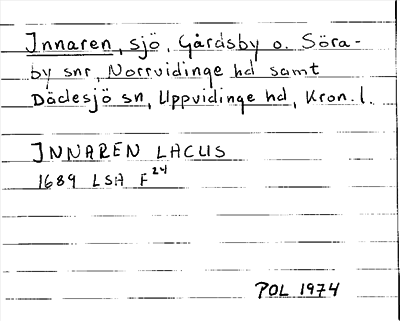 Innaren, sjö, Gårdsby o. Söra-
by snr, Norrvidinge hd samt
Dädesjö sn, Uppvidinge hd, Kron. l.
INNAREN LACUS
1689 LSA F24
POL 1974